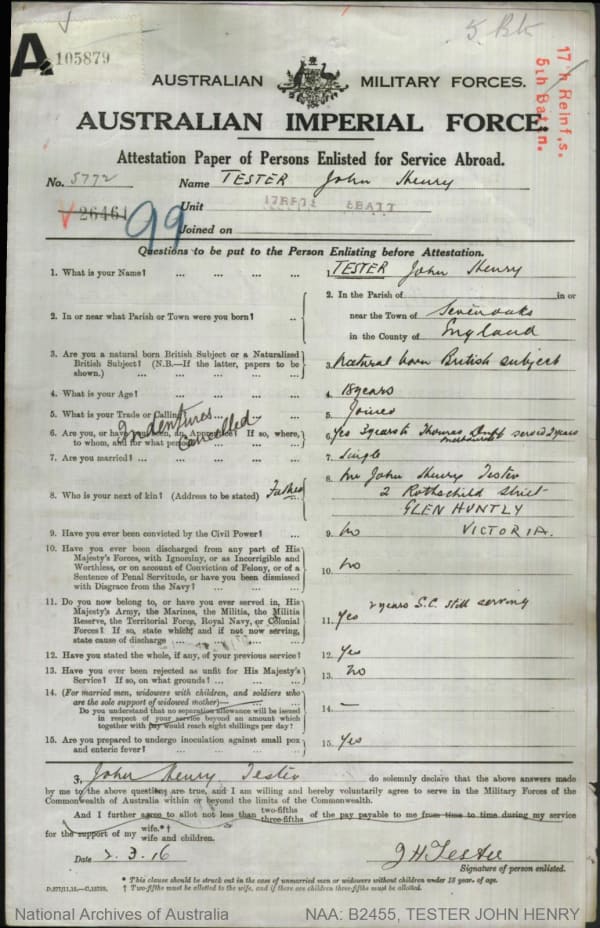 A 105879
5 Bn
17th Reinf,s.
5th Battn.
AUSTRALIAN MILITARY FORCES.
AUSTRALIAN IMPERIAL FORCE.
Attestation Paper of Persons Enlisted for Service Abroad.
No. 5772 Name TESTER John Henry
26461 99 Unit 17REFTS 5BATT
Joined on
Questions to be put to the Person Enlisting before Attestation.
1. What is your Name? ... ... ... ... 1. TESTER John Henry
2. In or near what Parish or Town were you born? ... 2. In the Parish of in or
near the Town of Sevenoaks
in the County of England
3. Are you a natural born British Subject or a Naturalized
British Subject? (N.B.—If the latter, papers to be
shown.) ... ... ... ... 3. Natural born British subject
4. What is your Age? ... ... ... ... 4. 18 years
5. What is your Trade or Calling? ... ... 5. Joiner
Indentures Cancelled
6. Are you, or have you been, an Apprentice? If so, where,
to whom, and for what period? 6. Yes 3 years to Thomas Melbourne served 2 years
7. Are you married? ... ... ... ... 7. Single
8. Who is your next of kin? (Address to be stated) Father 8. Mr John Henry Tester
2 Rothschild Street
GLEN HUNTLY
VICTORIA.
9. Have you ever been convicted by the Civil Power? ... 9. No
10. Have you ever been discharged from any part of His
Majesty's Forces, with Ignominy, or as Incorrigible and
Worthless, or on account of Conviction of Felony, or of a
Sentence of Penal Servitude, or have you been dismissed
with Disgrace from the Navy? ... ... ... 10. No
11. Do you now belong to, or have you ever served in, His
Majesty's Army, the Marines, the Militia, the Militia
Reserve, the Territorial Force, Royal Navy, or Colonial
Forces? If so, state which, and if not now serving,
state cause of discharge ... ... ... 11. Yes 2 years S.C. still serving
12. Have you stated the whole, if any, of your previous service? 12. Yes
13. Have you ever been rejected as unfit for His Majesty's
Service? If so, on what grounds? ... ... ... 13. No
14. (For married men, widowers with children, and soldiers who
are the sole support of widowed mother)—
Do you understand that no separation allowance will be issued
in respect of your service beyond an amount which
together with pay would reach eight shillings per day? ... 14. —
15. Are you prepared to undergo inoculation against small pox
and enteric fever? ... ... ... ... 15. Yes
I, John Henry Tester do solemnly declare that the above answers made
by me to the above questions are true, and I am willing and hereby voluntarily agree to serve in the Military Forces of the
Commonwealth of Australia within or beyond the limits of the Commonwealth.
And I further agree to allot not less than two-fifths three-fifths of the pay payable to me from time to time during my service
for the support of my wife.*† wife and children.
Date 2.3.16 J H Tester
Signature of person enlisted.
* This clause should be struck out in the case of unmarried men or widowers without children under 18 years of age.
† Two-fifths must be allotted to the wife, and if there are children three-fifths must be allotted.
D.577/11.15.—C.15733.
National Archives of Australia NAA: B2455, TESTER JOHN HENRY